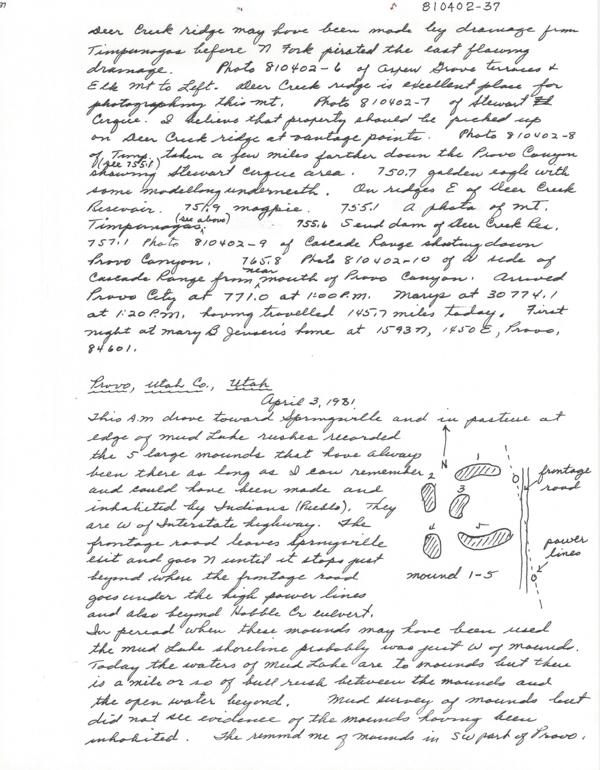 37
810402-37
Deer Creek ridge may have been made by drainage from
Timpanogas before N Fork pirated the east flowing
drainage. Photo 810402-6 of Aspen Grove terraces &
Elk Mt to Left. Deer Creek ridge is excellent place for
photographing this mt. Photo 810402-7 of Stewart
Cirque. I believe that property should be picked up
on Deer Creek ridge at vantage points. Photo 810402-8
of Timp. (see 755.1) taken a few miles farther down the Provo Canyon
showing Stewart Cirque area. 750.7 golden eagle with
some modelling underneath. On ridges E of Deer Creek
Reservoir. 751.9 magpie. 755.1 A photo of Mt.
Timpanogas. (see above) 755.6 S end dam of Deer Creek Res.
757.1 Photo 810402-9 of Cascade Range shooting down
Provo Canyon. 765.8 Photo 810402-10 of W side of
Cascade Range from near mouth of Provo Canyon. Arrived
Provo City at 771.0 at 1:00 P.M. Marys at 30774.1
at 1:20 P.M. having travelled 145.7 miles today. First
night at Mary B Jensen's home at 1593 N, 1450 E, Provo,
84601.
Provo, Utah Co., Utah
April 3, 1981
This A.M drove toward Springville and in pasture at
edge of Mud Lake rushes recorded
the 5 large mounds that have always
been there as long as I can remember
and could have been made and
inhabited by Indians (Pueblo). They
are W of Interstate highway. The
frontage road leaves Springville
exit and goes N until it stops just
beyond where the frontage road
goes under the high power lines
and also beyond Hobble Cr culvert.
N
1
2
3
4
5
frontage
road
power
lines
mound 1-5
In period when these mounds may have been used
the Mud Lake shoreline probably was just W of mounds.
Today the waters of Mud Lake are to mounds but there
is a mile or so of bull rush between the mounds and
the open water beyond. Mud survey of mounds but
did not see evidence of the mounds having been
inhabited. The remind me of mounds in SW part of Provo.